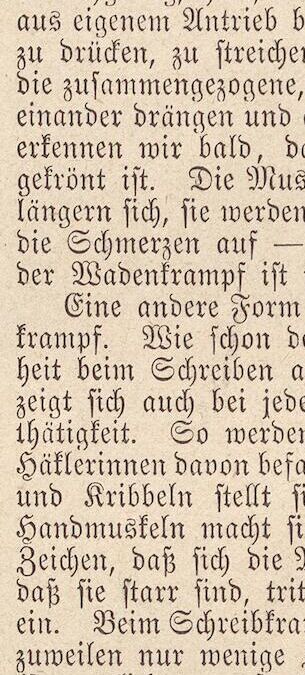 aus eigenem Antrieb b
zu drücken, zu streichen
die zusammengezogene,
einander drängen und
erkennen wir bald, da
gekrönt ist. Die Mus
längern sich, sie werden
die Schmerzen auf —
der Wadenkrampf ist
Eine andere Form
krampf. Wie schon de
heit beim Schreiben a
zeigt sich auch bei jede
thätigkeit. So werden
Häklerinnen davon befa
und Kribbeln stellt si
Handmuskeln macht si
Zeichen, daß sich die M
daß sie starr sind, trit
ein. Beim Schreibkra
zuweilen nur wenige